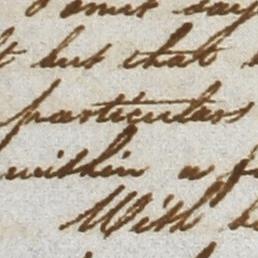 I must say
but that
particulars
within a
With